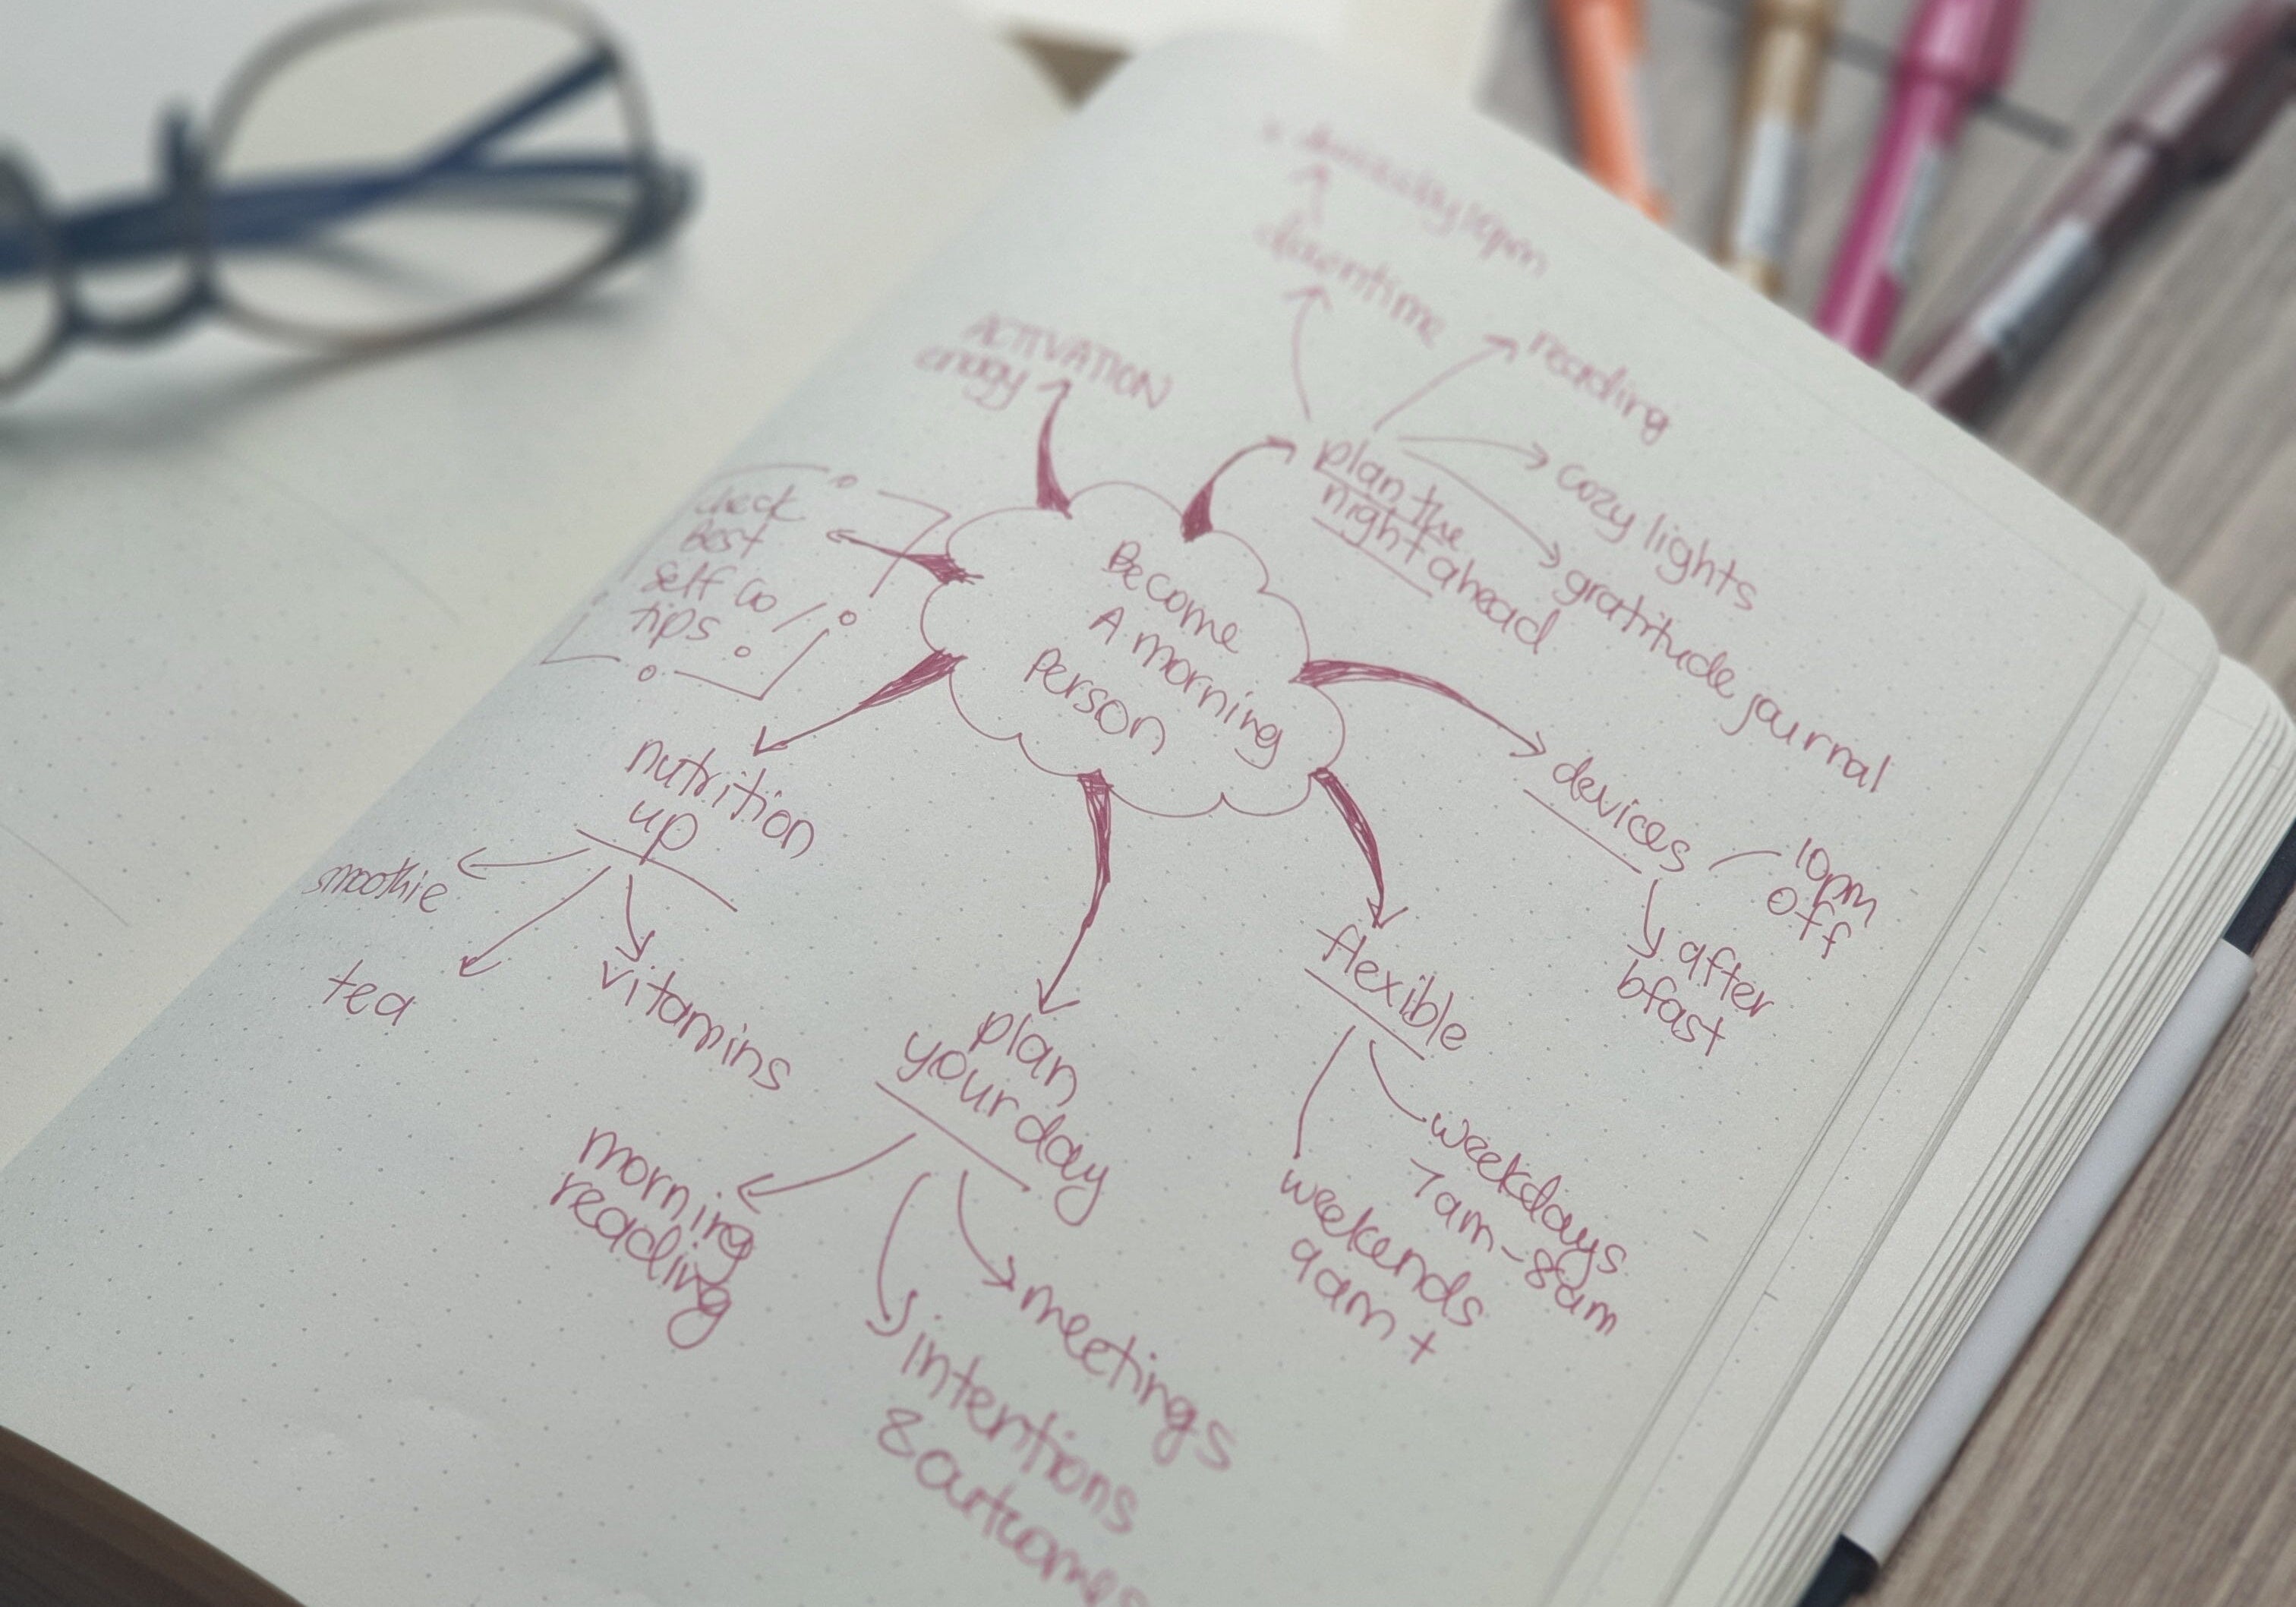 Become
A morning
person
ACTIVATION
enegy
plan the
night ahead
downtime
10pm
reading
cozy lights
gratitude journal
devices
10pm
off
after
bfast
flexible
weekdays
7am-8am
weekends
9am +
plan
your day
meetings
intentions
& outcomes
morning
reading
nutrition
up
smoothie
tea
vitamins
check
best
self co
tips